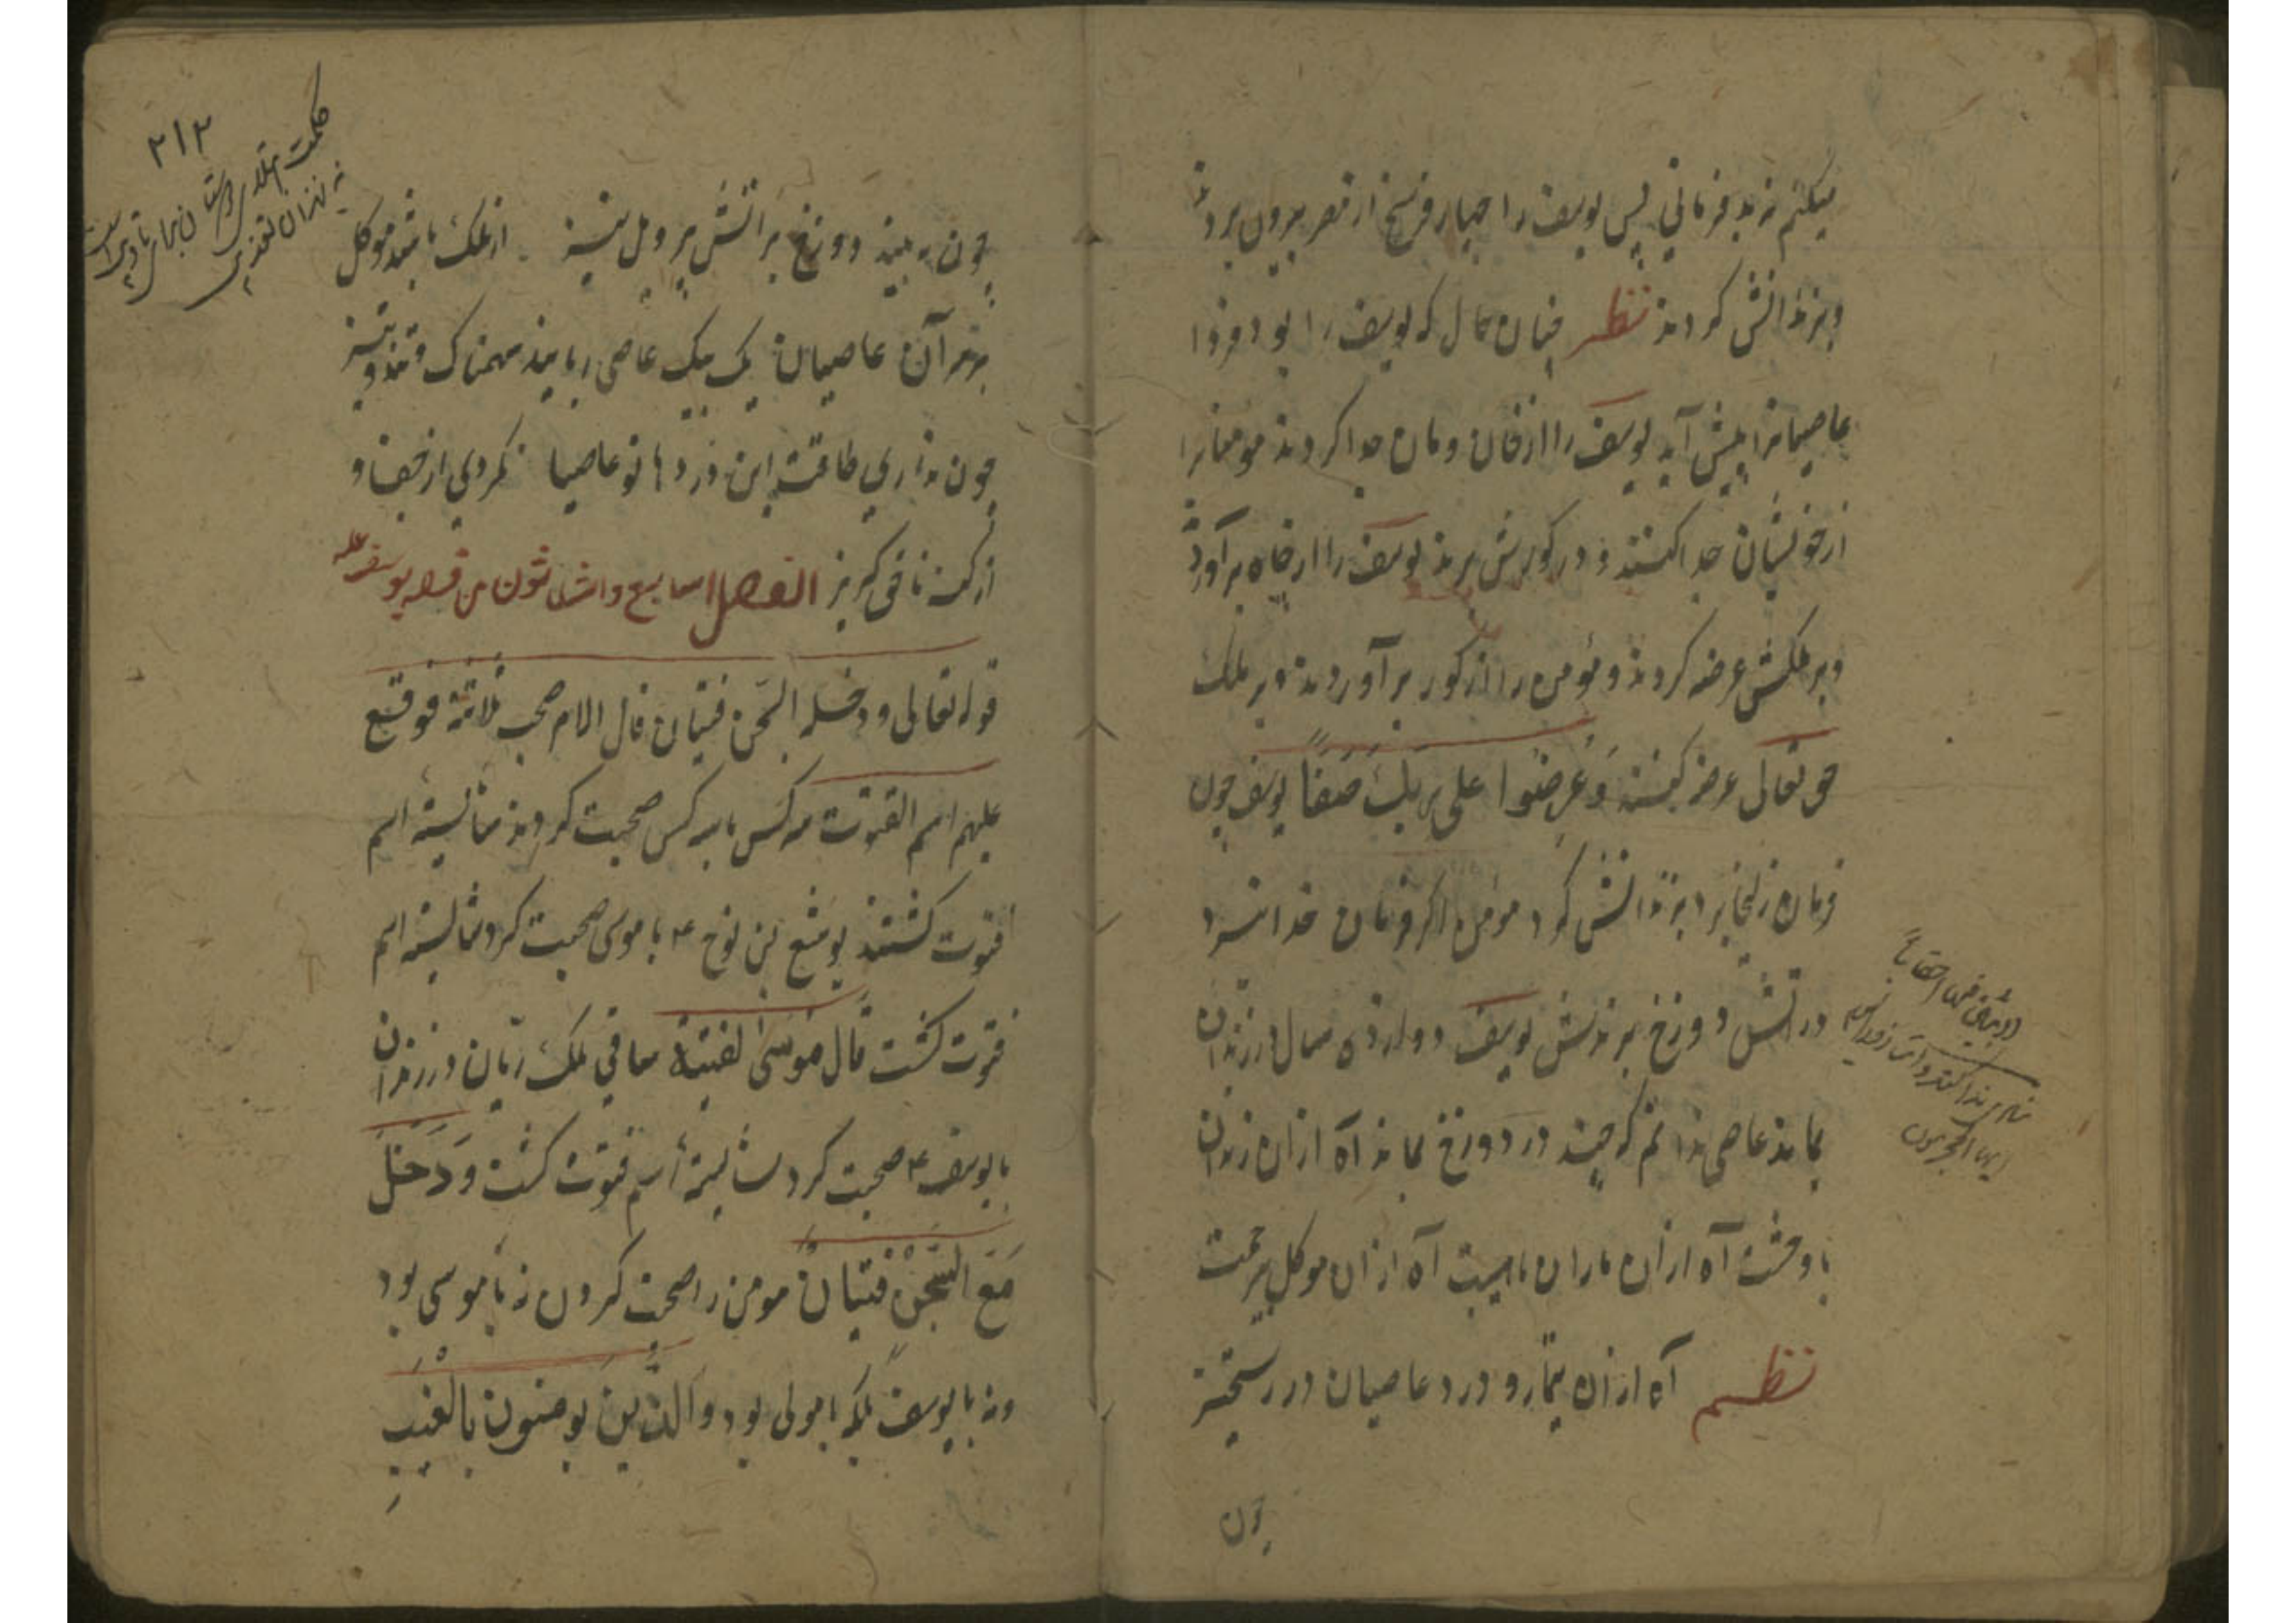 میکنم نه بد فرمانی پس یوسف را چهار فرسخ از قصر بیرون بردند
و بزندانش کردند نظر چنان حال که یوسف را بود فردا
عاصیانرا پیش آید یوسف را از خان و مان جدا کردند مومنانرا
از خویشان جدا کنند و در کورش برند یوسف را از چاه برآوردند
و بر ملکش عرضه کردند و مؤمن را از کور برآورند و بر ملک
حق تعالی عرض کنند وَعُرِضُوا علی ربک صَفًّا یوسف چون
فرمان زلیخا نبرد بزندانش کرد مومن اکر فرمان خدا نبرد
در آتش دوزخ برندش یوسف دوازده سال در زندان
بماند عاصی ندانم که چند در دوزخ بماند آه ازان زندان
با وحشت آه ازان ماران باهیبت آه ازان موکل بیرحمت
نظم آه ازان تیمار و درد عاصیان در رستخیز
چون
لابثین فیها احقابا
ایها المجرمون
۲۱۲
حکمت ابتلای دوستان برای تادیب است
نه نه زندان تعذیب
چون به بیند دوزخ پر آتش پر و بل نیز از ملک باشد موکل
بر سر آن عاصیان یک بیک عاصی رباید سهمناک و تند و تیز
چون نداری طاقت این دردها تو عاصیا نکردی از جفا و
از کنه ناقی کریز الفصل السابع والثلاثون من قصه یوسف علیه
قوله تعالی ودخل معه السجن فتیان قال الامام صحب ثلاثة فوقع
علیهم اسم الفتوت سه کس با سه کس صحبت کردند شایسته اسم
فتوت کشتند یوشع بن نوح ع با موسی صحبت کرد شایسته اسم
فتوت کشت قال موسی لفتیه ساقی ملک ریان در زندان
با یوسف ع صحبت کرد شایسته اسم فتوت کشت وَدَخَلَ
مَعَهُ السِّجْنَ فَتَیَانِ مومن را صحبت کردن نه با موسی بود
و نه با یوسف بلکه با مولی بود والّذین یومنون بالغیب